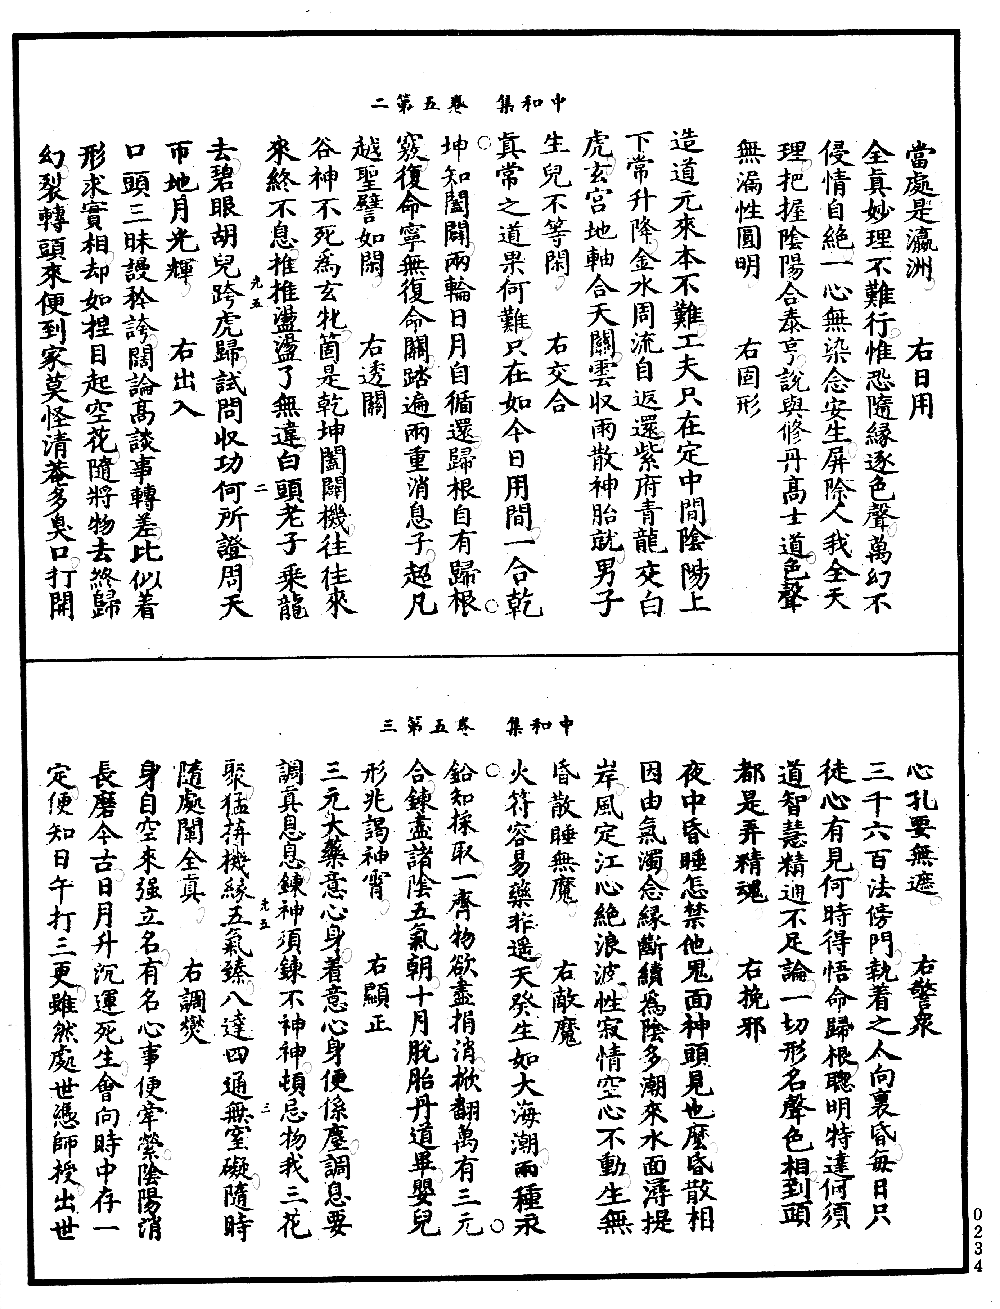 中和集　卷五第二
當處是瀛洲　右日用
全真妙理不難行惟恐隨緣逐色聲萬幻不
侵情自絕一心無染念安生屏除人我全天
理把握陰陽合泰亨說與修丹高士道色聲
無漏性圓明　右固形
造道元來本不難工夫只在定中間陰陽上
下常升降金水周流自返還紫府青龍交白
虎玄宮地軸合天關雲收雨散神胎就男子
生兒不等閑　右交合
真常之道果何難只在如今日用間一合乾
坤知闔闢兩輪日月自循還歸根自有歸根
竅復命寧無復命關踏遍兩重消息子超凡
越聖譬如閑　右透關
谷神不死為玄牝箇是乾坤闔闢機往往來
來終不息推推盪盪了無違白頭老子乘龍
去碧眼胡兒跨虎歸試問收功何所證周天
帀地月光輝　右出入
口頭三昧謾矜誇闊論高談事轉差比似着
形求實相却如捏目起空花隨將物去終歸
幻裂轉頭來便到家莫怪清菴多臭口打開
光五　二
中和集　卷五第三
心孔要無遮　右警衆
三千六百法傍門執着之人向裏昏每日只
徒心有見何時得悟命歸根聰明特達何須
道智慧精通不足論一切形名聲色相到頭
都是弄精魂　右挽邪
夜中昏睡怎禁他鬼面神頭見也麼昏散相
因由氣濁念緣斷續為陰多潮來水面潯提
岸風定江心絕浪波性寂情空心不動生無
昏散睡無魔　右敵魔
火符容易藥非遥天癸生如大海潮兩種汞
鉛知採取一齊物欲盡捐消掀翻萬有三元
合鍊盡諸陰五氣朝十月脫胎丹道畢嬰兒
形兆謁神霄　右顯正
三元大藥意心身着意心身便係塵調息要
調真息息鍊神須鍊不神神頓忌物我三花
聚猛拚機緣五氣臻八達四通無窒礙隨時
隨處闡全真　右調燮
身自空來强立名有名心事便牽縈陰陽消
長磨今古日月升沉運死生會向時中存一
定便知日午打三更雖然處世憑師授出世
光五　三
0234